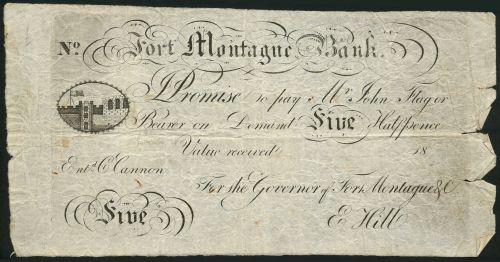 No. Fort Montague Bank.
I Promise to pay Mr. John Flag or
Bearer on Demand Five Halfpence
Value received 18
Entd. C. Cannon
For the Governor of Fort Montague &C
Five
E Hill